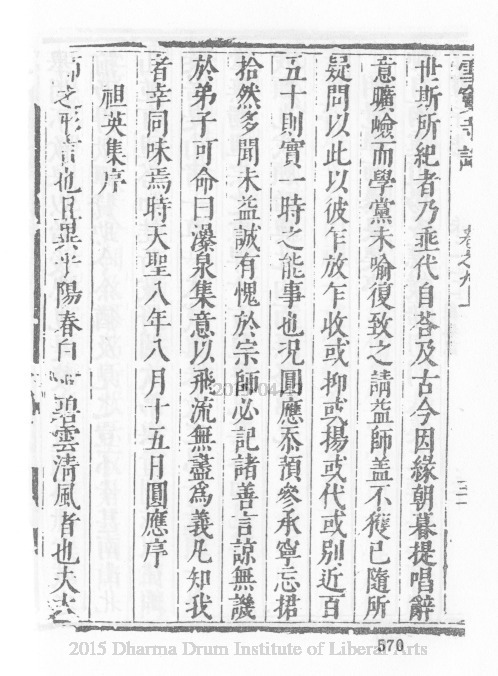 雪竇寺誌
卷之九上
世斯所紀者乃乖代自荅及古今因緣朝暮提唱辭
意曠嶮而學黨未喻復致之請益師盖不獲已隨所
疑問以此以彼乍放乍收或抑或揚或代或別近百
五十則實一時之能事也況圓應忝預參承寧忘捃
拾然多聞未益誠有愧於宗師必記諸善言諒無譏
於弟子可命曰瀑泉集意以飛流無盡為義凡知我
者幸同味焉時天聖八年八月十五日圓應序
祖英集序
師之形言也且異乎陽春白 碧雲清風者也夫
2015-04-
570
2015 Dharma Drum Institute of Liberal Arts